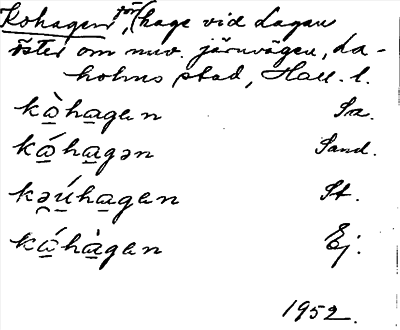 Kohagen, (hage vid Lagan
öster om nuv. järnvägen, La-
holms stad, Hall. l.
kòhagen Sa.
káhagən Sand.
kəúhagen St.
káhàgen Ej.
1952.